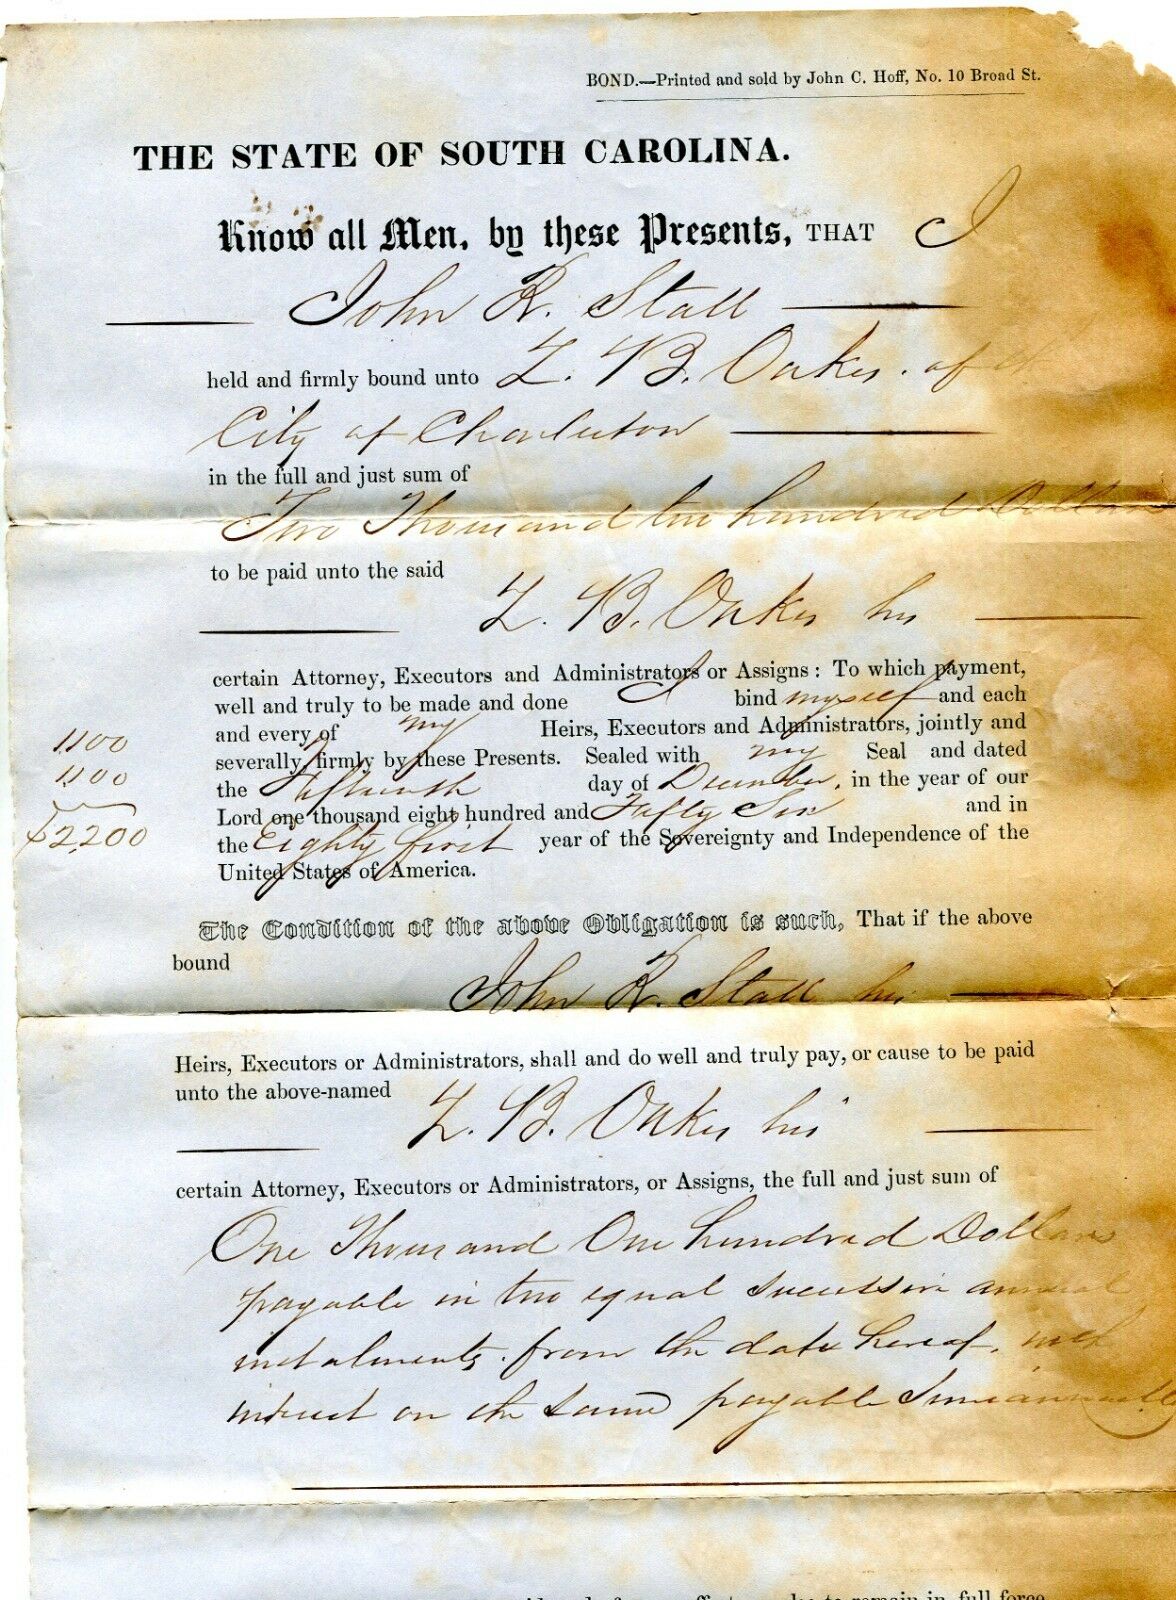 BOND.—Printed and sold by John C. Hoff, No. 10 Broad St.
THE STATE OF SOUTH CAROLINA.
Know all Men, by these Presents, THAT I
John R. Stall
held and firmly bound unto Z. B. Oakes. of
City of Charleston
in the full and just sum of
Two Thousand two hundred Dollars
to be paid unto the said
Z. B. Oakes his
certain Attorney, Executors and Administrators or Assigns: To which payment,
well and truly to be made and done I bind myself and each
and every of my Heirs, Executors and Administrators, jointly and
1100
severally, firmly by these Presents. Sealed with my Seal and dated
1100
the Fifteenth day of December, in the year of our
Lord one thousand eight hundred and Fifty Six and in
$2,200
the Eighty first year of the Sovereignty and Independence of the
United States of America.
The Condition of the above Obligation is such, That if the above
bound
John R. Stall his
Heirs, Executors or Administrators, shall and do well and truly pay, or cause to be paid
unto the above-named
Z. B. Oakes his
certain Attorney, Executors or Administrators, or Assigns, the full and just sum of
One Thousand One hundred Dollars
payable in two equal successive annual
instalments. from the date hereof, with
interest on the same payable Semiannually
in full force